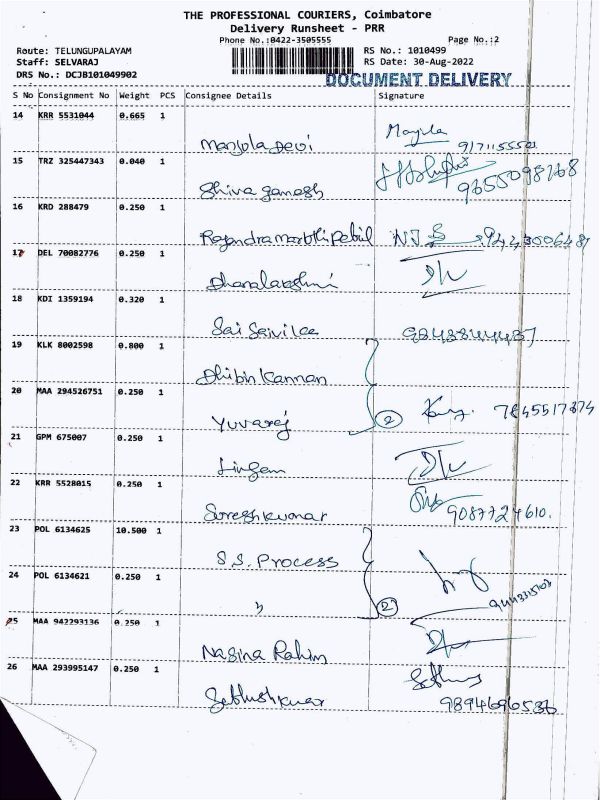 THE PROFESSIONAL COURIERS, Coimbatore
Delivery Runsheet - PRR
Phone No.:0422-3505555
Page No.:2
Route: TELUNGUPALAYAM
RS No.: 1010499
Staff: SELVARAJ
RS Date: 30-Aug-2022
DRS No.: DCJB101049902
DOCUMENT DELIVERY
S No Consignment No Weight PCS Consignee Details Signature
14 KRR 5531044 0.665 1
Manjola Devi
15 TRZ 325447343 0.040 1
Shiva ganesh
16 KRD 288479 0.250 1
17 DEL 70082776 0.250 1
Dhanalakshmi
18 KDI 1359194 0.320 1
Sai
19 KLK 8002598 0.800 1
Dhibin Kannan
20 MAA 294526751 0.250 1
Yuvaraj 2 7845517374
21 GPM 675007 0.250 1
Lingam
22 KRR 5528015 0.250 1
Sureshkumar 9087724610.
23 POL 6134625 10.500 1
S.S. Process
24 POL 6134621 0.250 1
" 2
25 MAA 942293136 0.250 1
Nagina Rahim
26 MAA 293995147 0.250 1
9894696536